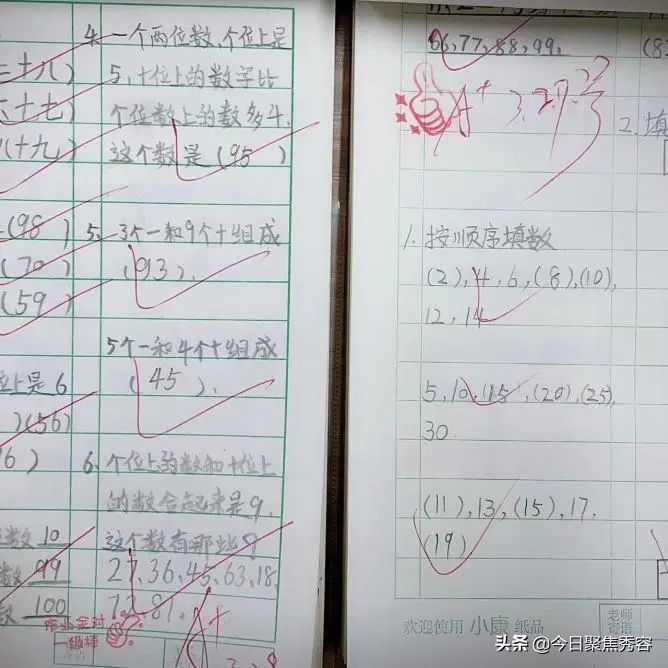 三十八)
六十七)
八十九)
(98)
(70)
(59
位上是6
)(56)
6)
位数10
数99
数100
4.一个两位数,个位上是
5,十位上的数字比
个位数上的数多4.
这个数是(95)
5. 3个一和9个十组成
(93).
5个一和4个十组成
(45).
6.个位上的数和十位上
的数合起来是9.
这个数有哪些?
27,36,45,63,18,
72,81.
作业全对
A+
3.8
66,77,88,99.
A+ 3.27.
1.按顺序填数
(2),4,6,(8),(10),
12,14
5,10,(15),(20),(25),
30.
(11),13,(15),17.
(19)
2.填
欢迎使用 小康 纸品
老师
寄语
头条 @今日聚焦秀容